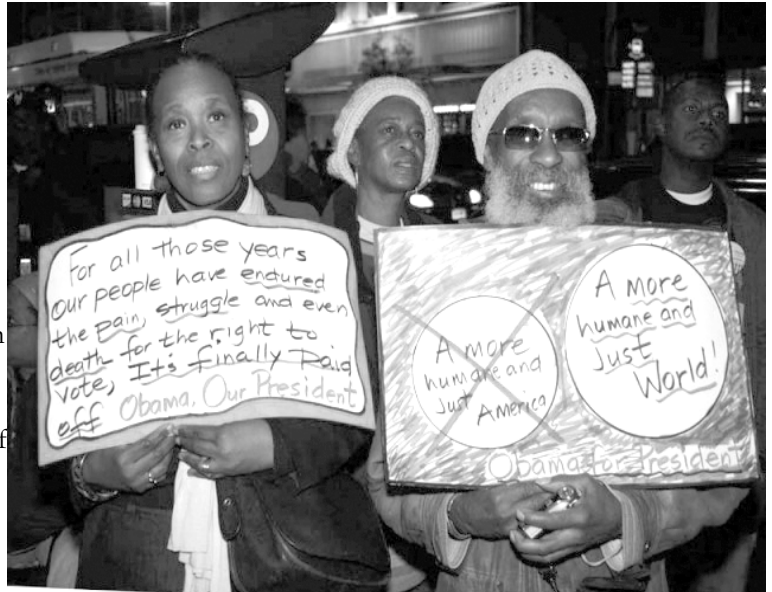 For all those years
our people have endured
the pain, struggle and even
death for the right to
vote, It's finally paid
off Obama, Our President
A more
humane and
Just America
A more
humane and
Just
World!
Obama for President